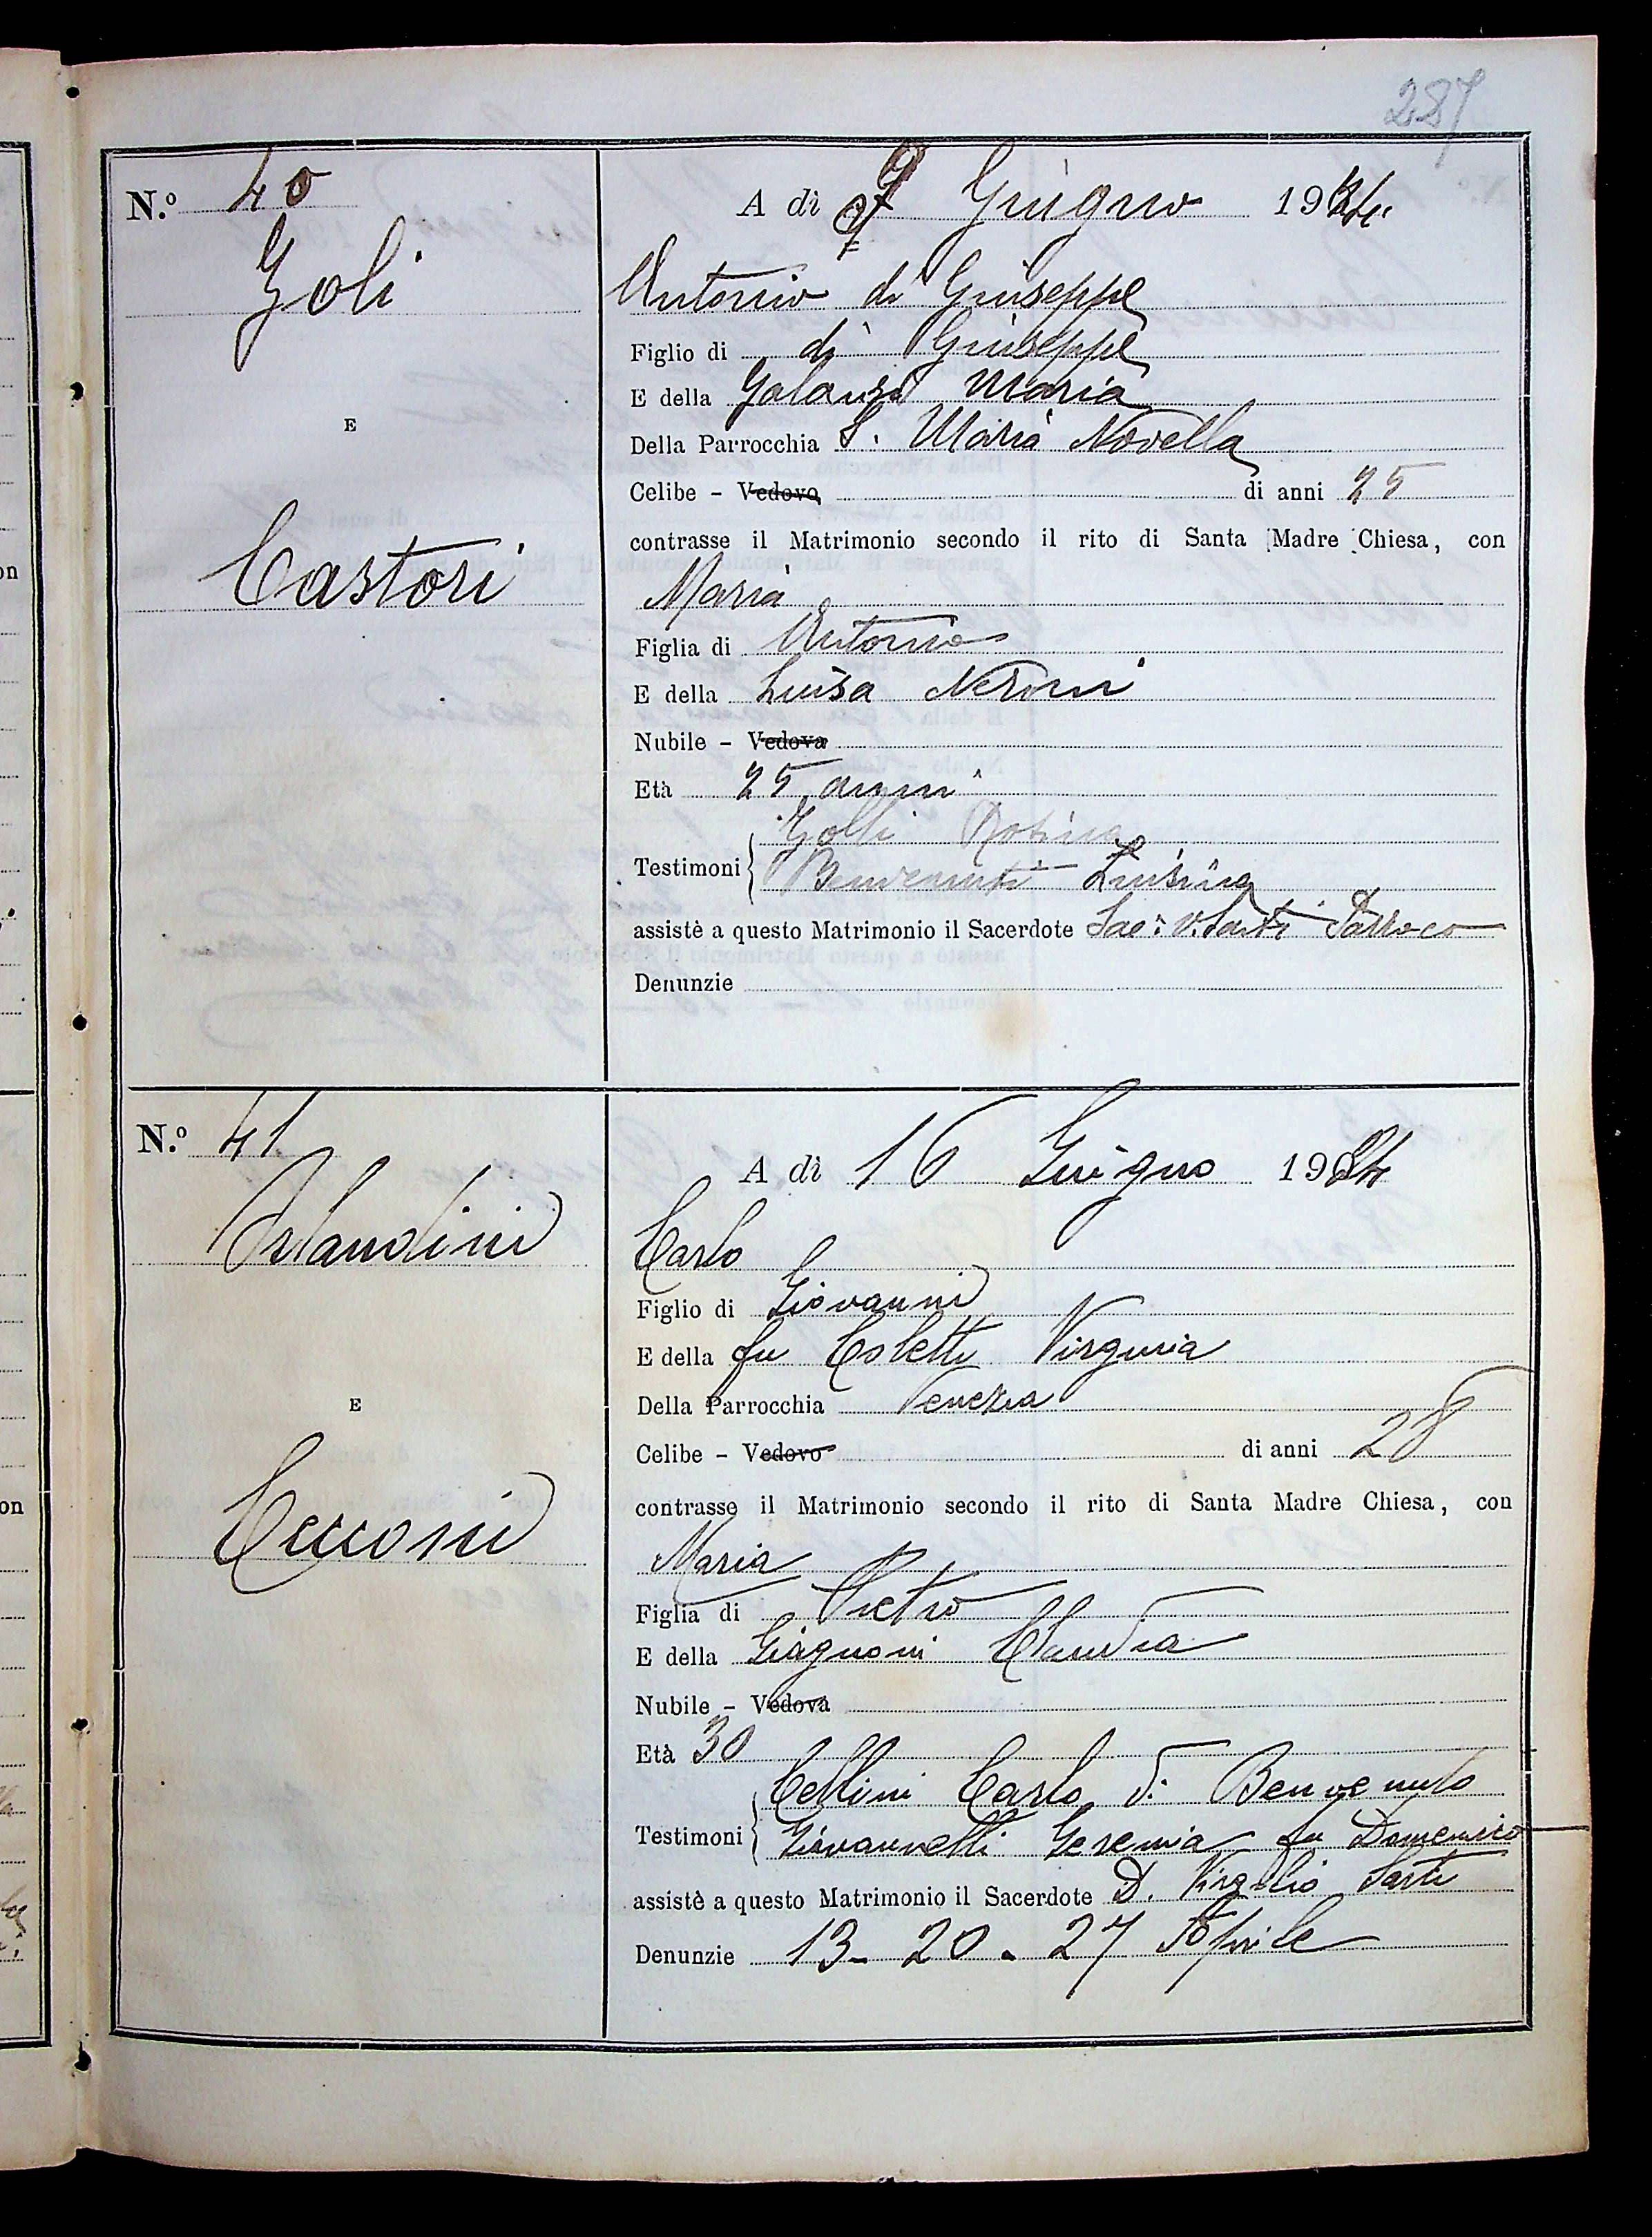 287
N.º 40
A dì 9 Giugno 1924
Goli
Antonio di Giuseppe
Figlio di di Giuseppe
E della Galanti Maria
E
Della Parrocchia S. Maria Novella
Celibe - Vedovo di anni 25
contrasse il Matrimonio secondo il rito di Santa Madre Chiesa, con
Castori
Maria
Figlia di Antonio
E della Luisa Neroni
Nubile - Vedova
Età 25 anni
Golli
Testimoni
Benvenuti Luisina
assistè a questo Matrimonio il Sacerdote Sac: V. Sarti Parroco
Denunzie
N.º 41
A dì 16 Giugno 1924
Orlandini
Carlo
Figlio di Giovanni
E della fu Coletti Virginia
E
Della Parrocchia Venezia
Celibe - Vedovo di anni 28
contrasse il Matrimonio secondo il rito di Santa Madre Chiesa, con
Cecconi
Maria
Figlia di Pietro
E della Giagnoni Claudia
Nubile - Vedova
Età 30
Cellini Carlo di Benvenuto
Testimoni
Giovannelli Geremia fu Domenico
assistè a questo Matrimonio il Sacerdote D. Virgilio Sarti
Denunzie 13 - 20 - 27 Aprile